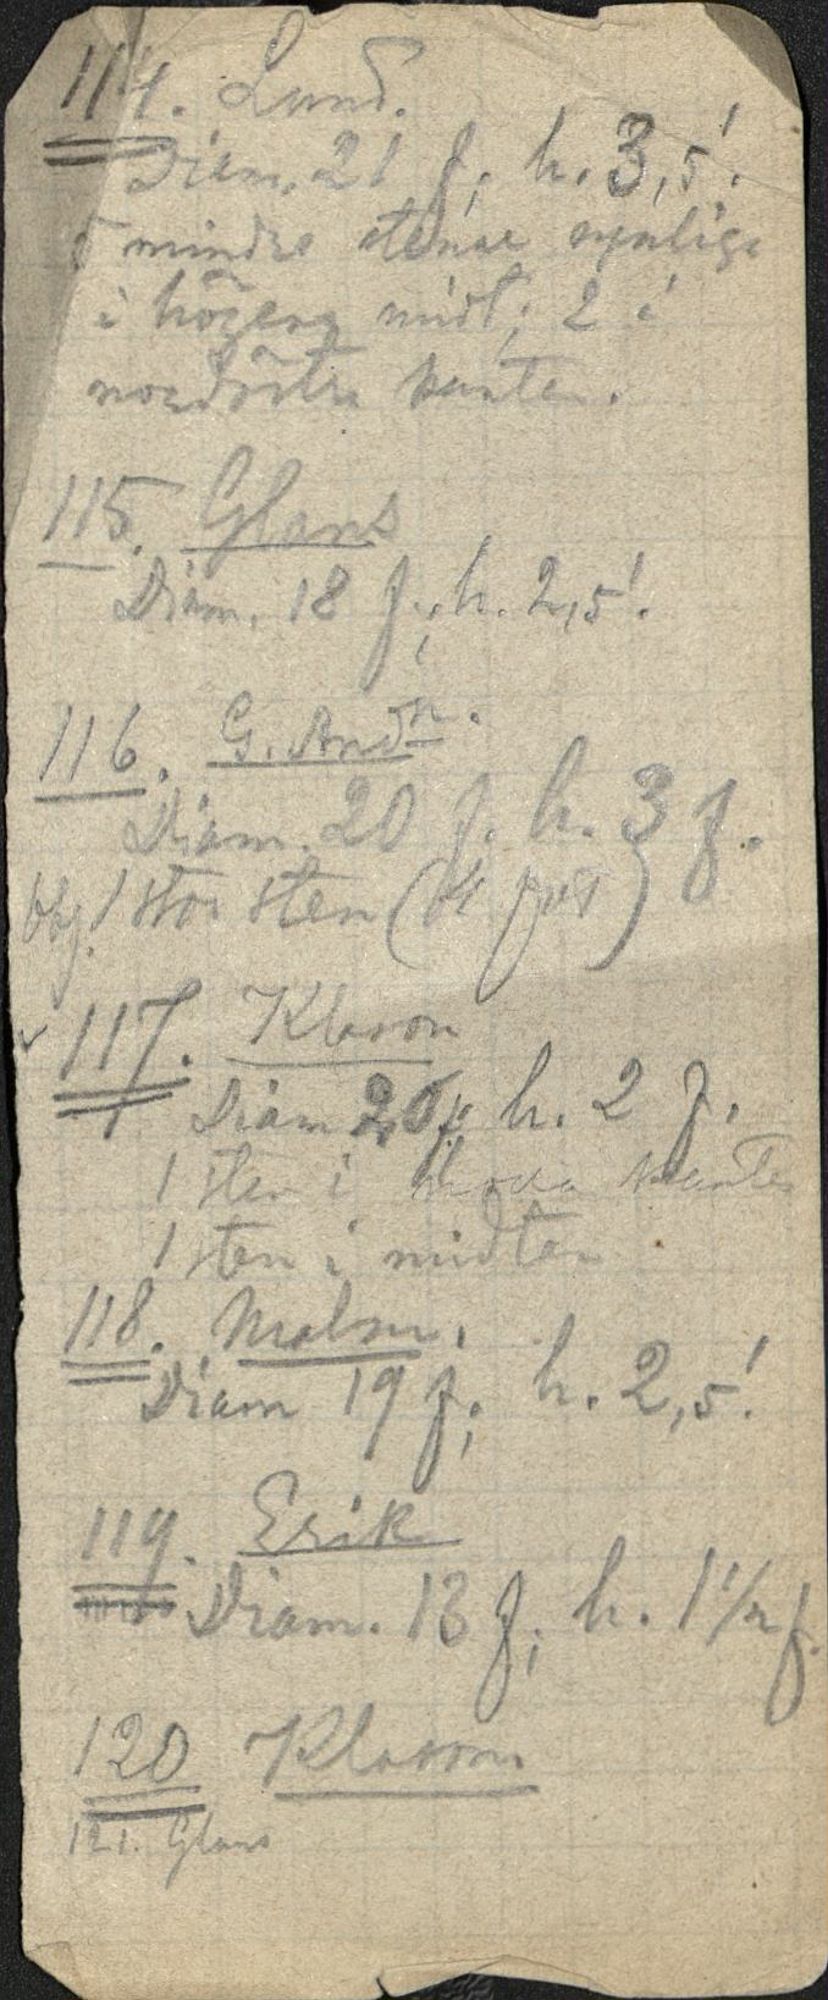 114. Lund.
Diam. 21 f; h. 3,5'.
5 mindre stenar synliga
i högens midt; 2 i
nordöstra kanten.
115. Glans
Diam. 18 f.; h. 2,5'.
116. G. And<sup>n</sup>.
Diam. 20 f. h. 3 f.
obj. 1 stor sten (4 fot)
117. Klason
Diam 20 f; h. 2 f.
1 sten i kanten
1 sten i midten
118. Malm.
Diam 19 f; h. 2,5'.
119. Erik
Diam. 13 f; h. 1 1/2 f.
120 Klason
121. Glans